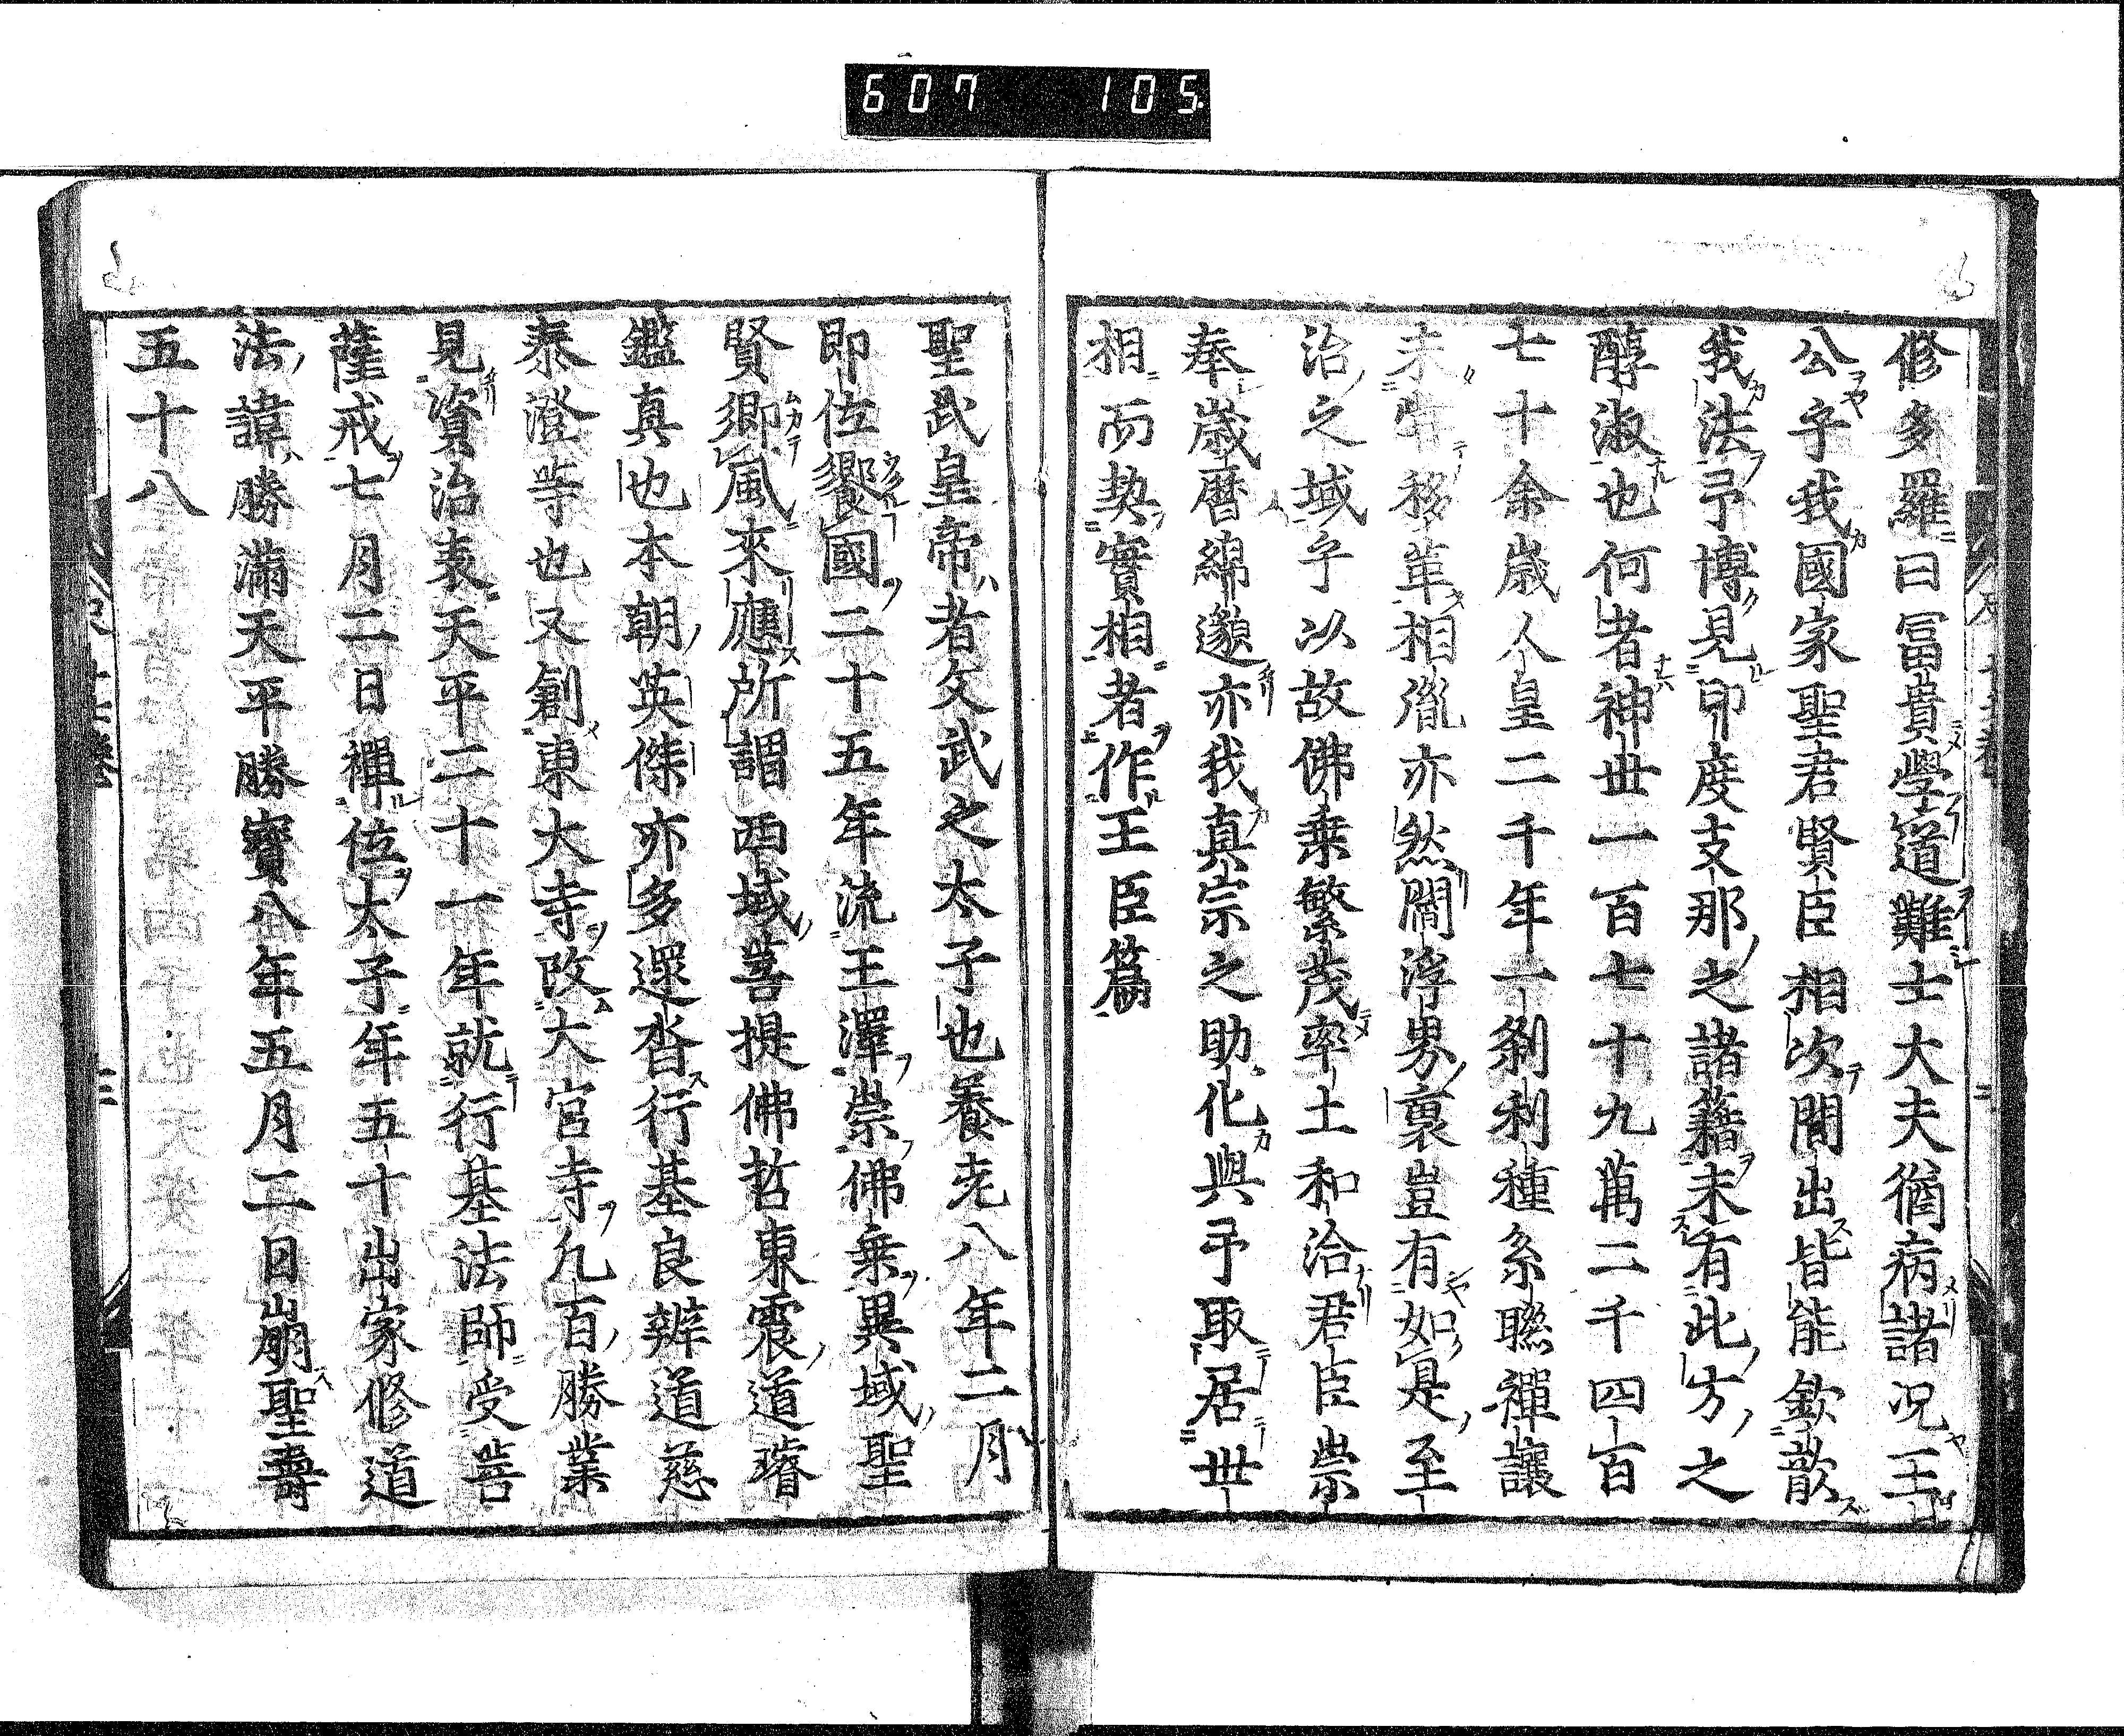 607 105.
修多羅曰冨貴學道難士大夫猶病諸况王
公乎我國家聖君賢臣相次間出皆能欽歆
我法予博見印度支那之諸藉未有此方之
醇淑也何者神世一百七十九萬二千四百
七十余歳人皇二千年一刹利種系聯禪讓
未嘗移革相胤亦然閻浮界裏豈有如是至
治之域乎以故佛乗繁茂率土和洽君臣崇
奉歳曆綿邈亦我真宗之助化與予取居世
相而契實相者作王臣篇
聖武皇帝者文武之太子也養老八年二月
即位饗國二十五年流王澤崇佛乗異域聖
賢鄉風來應所謂西域菩提佛哲東震道璿
鑑真也本朝英傑亦多還沓行基良辨道慈
泰澄等也又創東大寺改大官寺凢百勝業
見資治表天平二十一年就行基法師受菩
薩戒七月二日禪位太子年五十出家修道
法諱勝滿天平勝寶八年五月二日崩聖壽
五十八